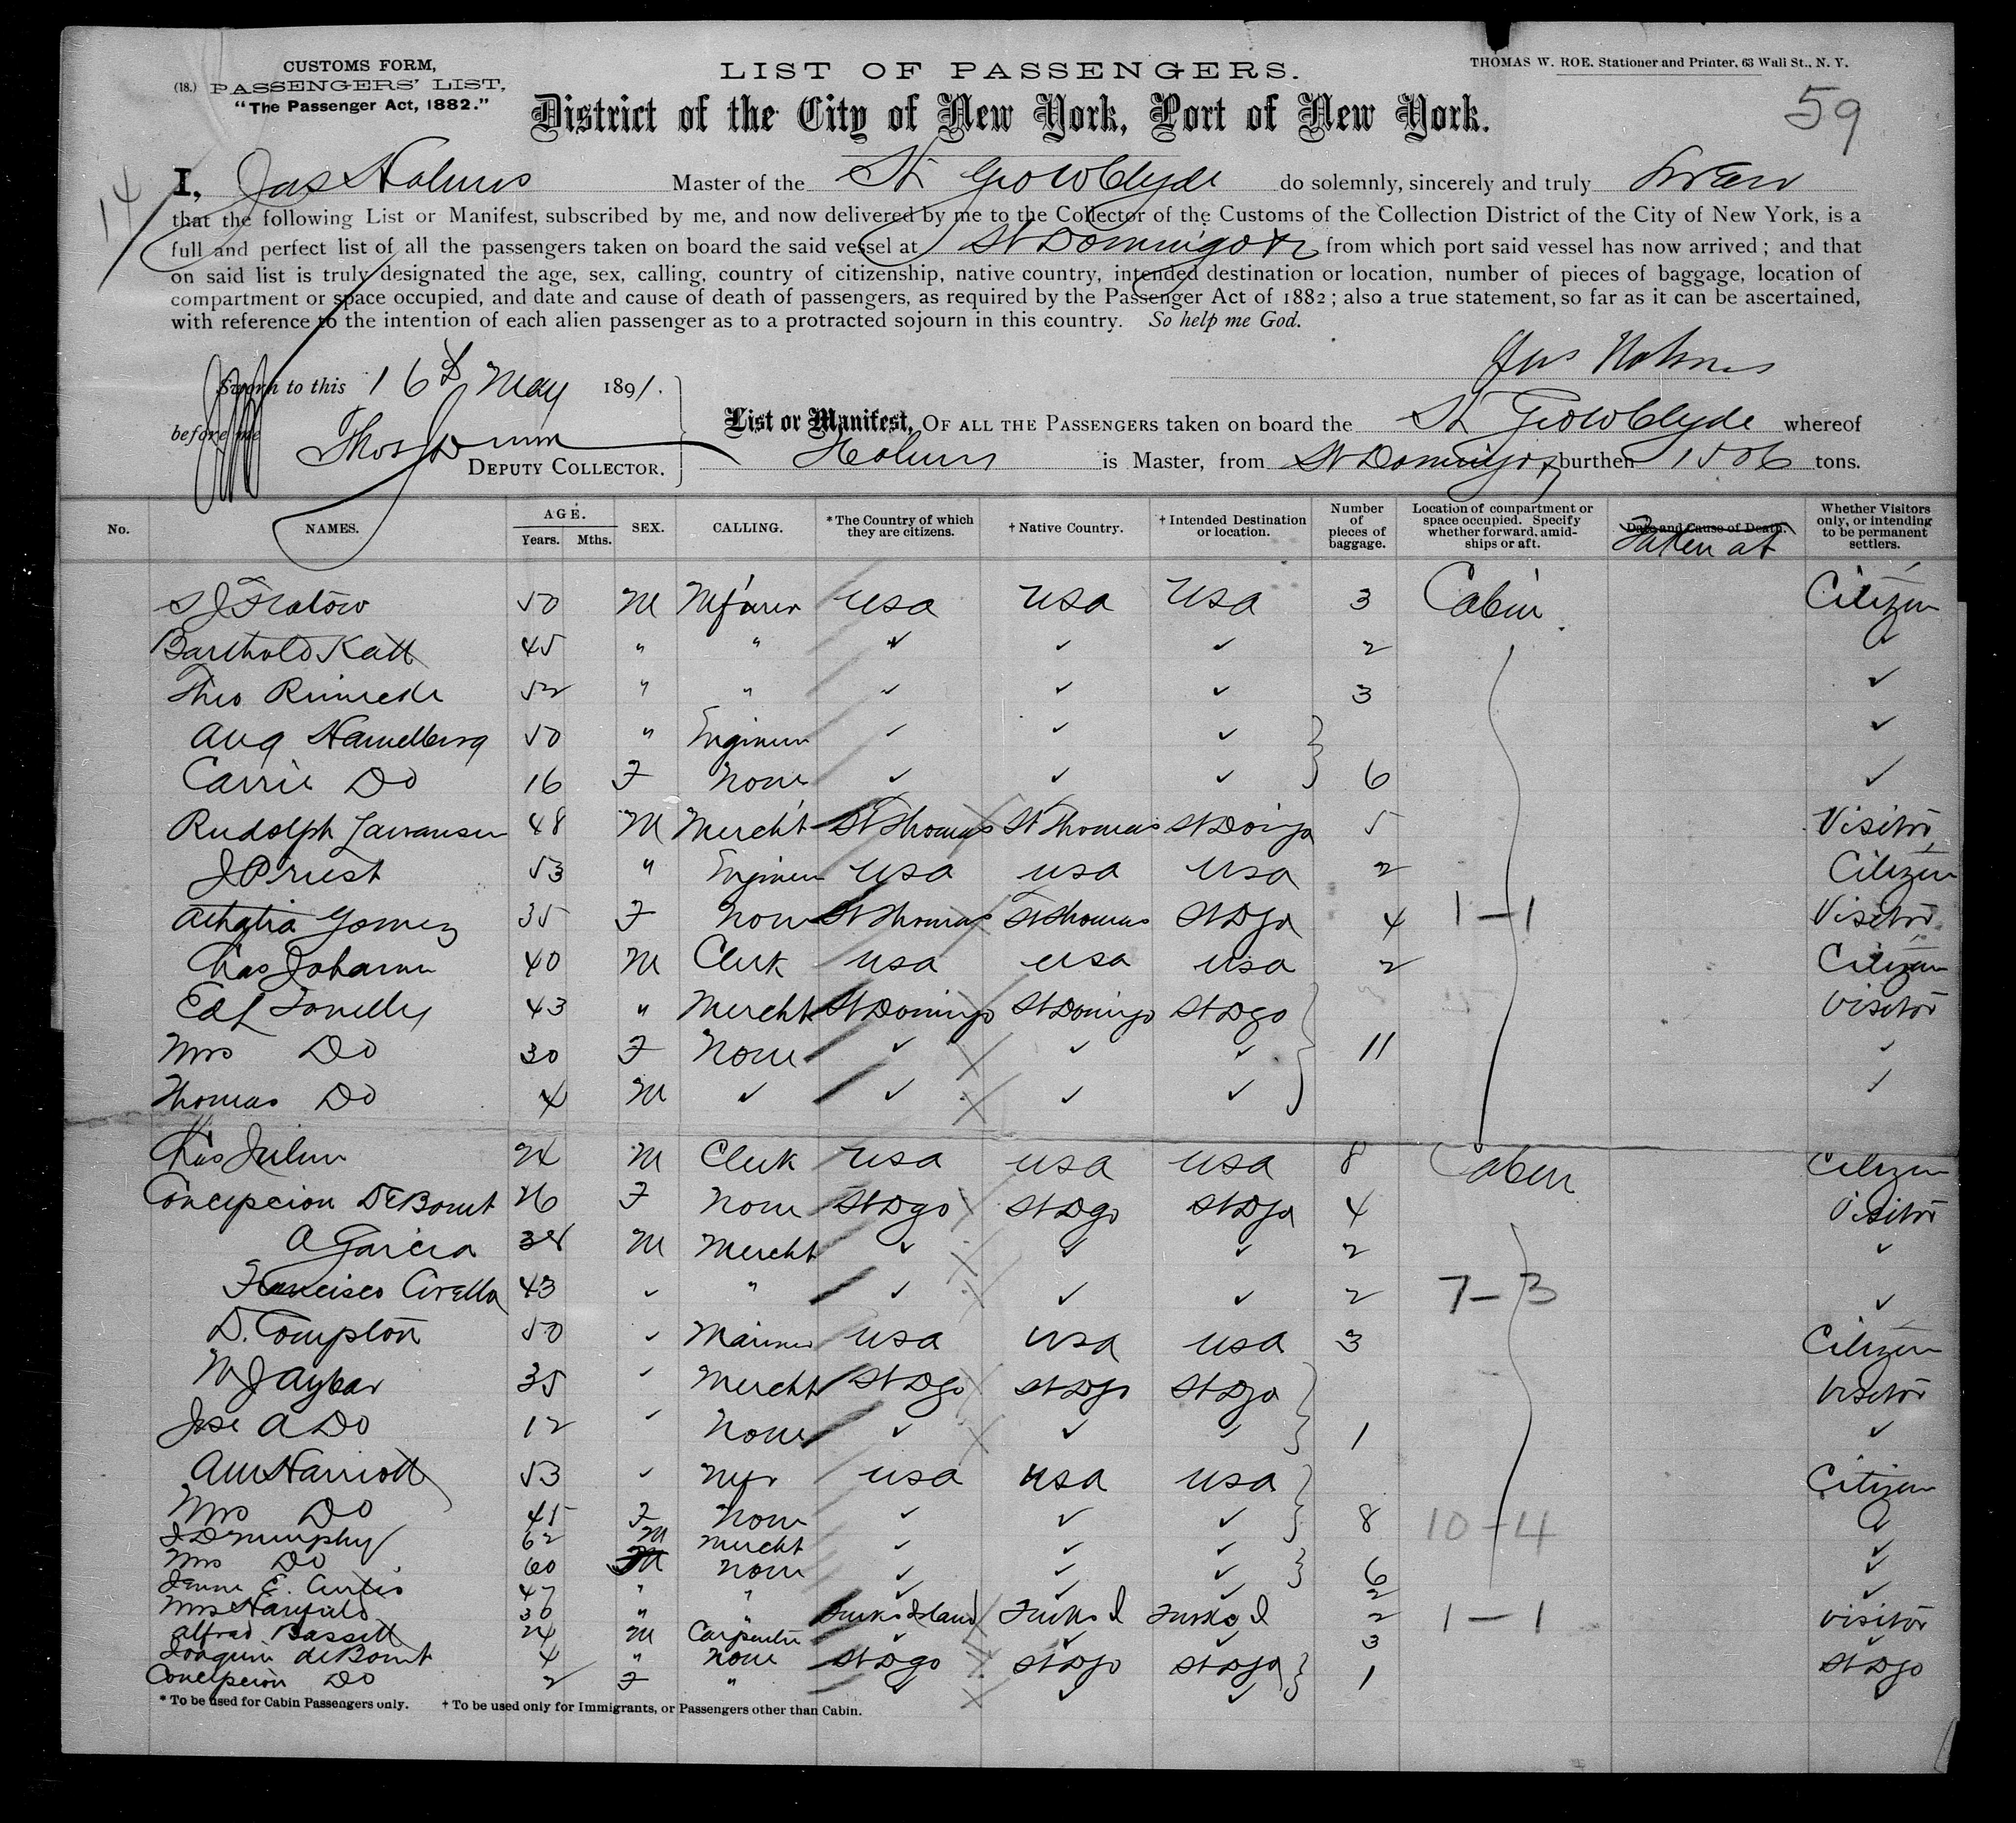 CUSTOMS FORM,
(18.) PASSENGERS' LIST,
"The Passenger Act, 1882."
LIST OF PASSENGERS.
THOMAS W. ROE. Stationer and Printer, 63 Wall St., N. Y.
District of the City of New York, Port of New York.
59
14
I, Jas Holmes Master of the St Geo W Clyde do solemnly, sincerely and truly swear
that the following List or Manifest, subscribed by me, and now delivered by me to the Collector of the Customs of the Collection District of the City of New York, is a
full and perfect list of all the passengers taken on board the said vessel at St Domingo & from which port said vessel has now arrived; and that
on said list is truly designated the age, sex, calling, country of citizenship, native country, intended destination or location, number of pieces of baggage, location of
compartment or space occupied, and date and cause of death of passengers, as required by the Passenger Act of 1882; also a true statement, so far as it can be ascertained,
with reference to the intention of each alien passenger as to a protracted sojourn in this country. So help me God.
Jas Holmes
Sworn to this 16th May 1891.
before me Thos Dunn
DEPUTY COLLECTOR.
List or Manifest, OF ALL THE PASSENGERS taken on board the St Geo W Clyde whereof
Holmes is Master, from St Domingo & burthen 1506 tons.
No. NAMES. AGE. Years. Mths. SEX. CALLING. *The Country of which they are citizens. †Native Country. †Intended Destination or location. Number of pieces of baggage. Location of compartment or space occupied. Specify whether forward, amidships or aft. Date and Cause of Death. Taken at Whether Visitors only, or intending to be permanent settlers.
50 M USA USA USA 3 Cabin Citizen
Barthold Katt 45 " " ✓ ✓ ✓ 2 ✓
Theo 52 " " ✓ ✓ ✓ 3 ✓
Aug 50 " Engineer ✓ ✓ ✓ ✓
Carrie Do 16 F None ✓ ✓ ✓ 6 ✓
Rudolph 48 M Mercht St Thomas St Thomas St Domgo 5 Visitor
J Priest 53 " Engineer USA USA USA 2 Citizen
Gomez 35 F None St Thomas St Thomas St Dgo 4 1-1 Visitor
Chas 40 M Clerk USA USA USA 2 Citizen
43 " Mercht St Domingo St Domingo St Dgo Visitor
Mrs Do 30 F None ✓ ✓ ✓ 11 ✓
Thomas Do 4 M ✓ ✓ ✓ ✓ ✓
Chas Julien 24 M Clerk USA USA USA 8 Cabin Citizen
Concepcion De Bourt 26 F None St Dgo St Dgo St Dgo 4 Visitor
A Garcia 34 M Mercht ✓ ✓ ✓ 2 ✓
Francisco 43 ✓ " ✓ ✓ ✓ 2 7-3 ✓
D. Compton 50 ✓ Mariner USA USA USA 3 Citizen
W J Aybar 35 ✓ Mercht St Dgo St Dgo St Dgo Visitor
Jose A Do 12 ✓ None ✓ ✓ ✓ 1 ✓
A W Harriott 53 ✓ USA USA USA Citizen
Mrs Do 45 F None ✓ ✓ ✓ 8 10-4 ✓
J D Murphy 62 M Mercht ✓ ✓ ✓ ✓
Mrs Do 60 None ✓ ✓ ✓ 6 ✓
Jenne E. Curtis 47 " " ✓ ✓ ✓ 2 ✓
Mrs 30 " " Turks Island Turks I Turks I 2 1-1 Visitor
Alfred Bassett 24 M Carpenter ✓ ✓ ✓ 3 ✓
Joaquin de Bourt 4 " None St Dgo St Dgo St Dgo St Dgo
Concepcion Do 2 F " ✓ ✓ ✓ 1
* To be used for Cabin Passengers only. † To be used only for Immigrants, or Passengers other than Cabin.